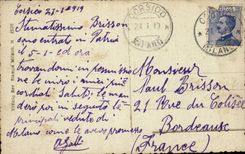 Corsico 23-1-1919
Stematissimo Brisson
sono entrato in Patria
il 5-1 ed ora
trovandomi in permissi
ne le invio i miei più
cordiali saluti. Le man
derò poi in seguito le
principali vedute di
Milano come le avevo promesso
CORSICO
MILANO
Monsieur
Paul Brisson
21 Rue du Colisée
Bordeaux
(France)